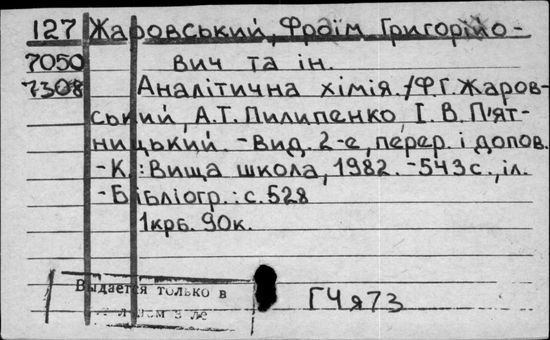 127 Жаровський, Фраїм Григорійо-
7050 вич та ін.
7308 Аналітична хімія./Ф.Г.Жаров-
ський, А.Т. Пилипенко, І. В. П'ят-
ницький. - Вид. 2-е, перер. і допов.
- К.: Вища школа, 1982. - 543 с., іл.
- Бібліогр.: с. 528
1крб. 90к.
Выдается только в
Г4я73